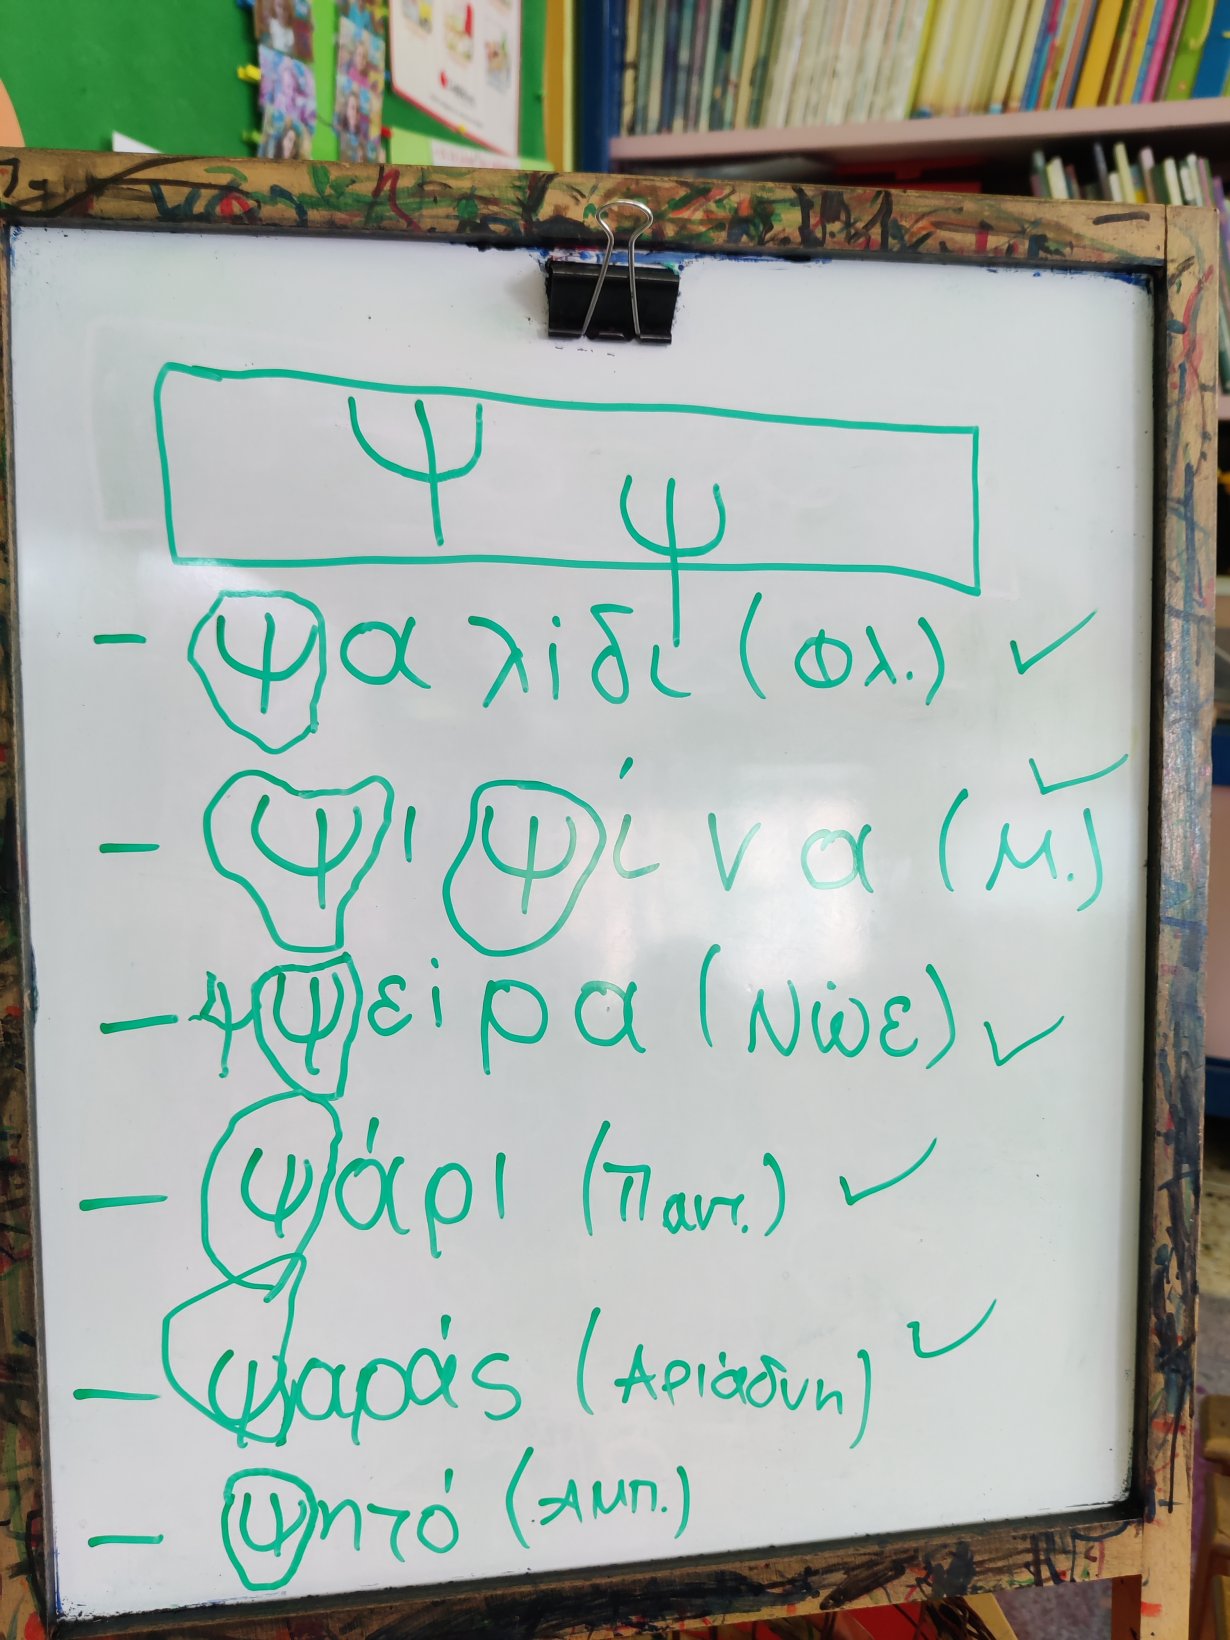 Ψ ψ
- ψαλίδι (Φλ.) ✓
- ψιψίνα (Μ.) ✓
- ψείρα (Νιόβε) ✓
- ψάρι (Παντ.) ✓
- ψαράς (Αριάδνη) ✓
- ψητό (Αμπ.)